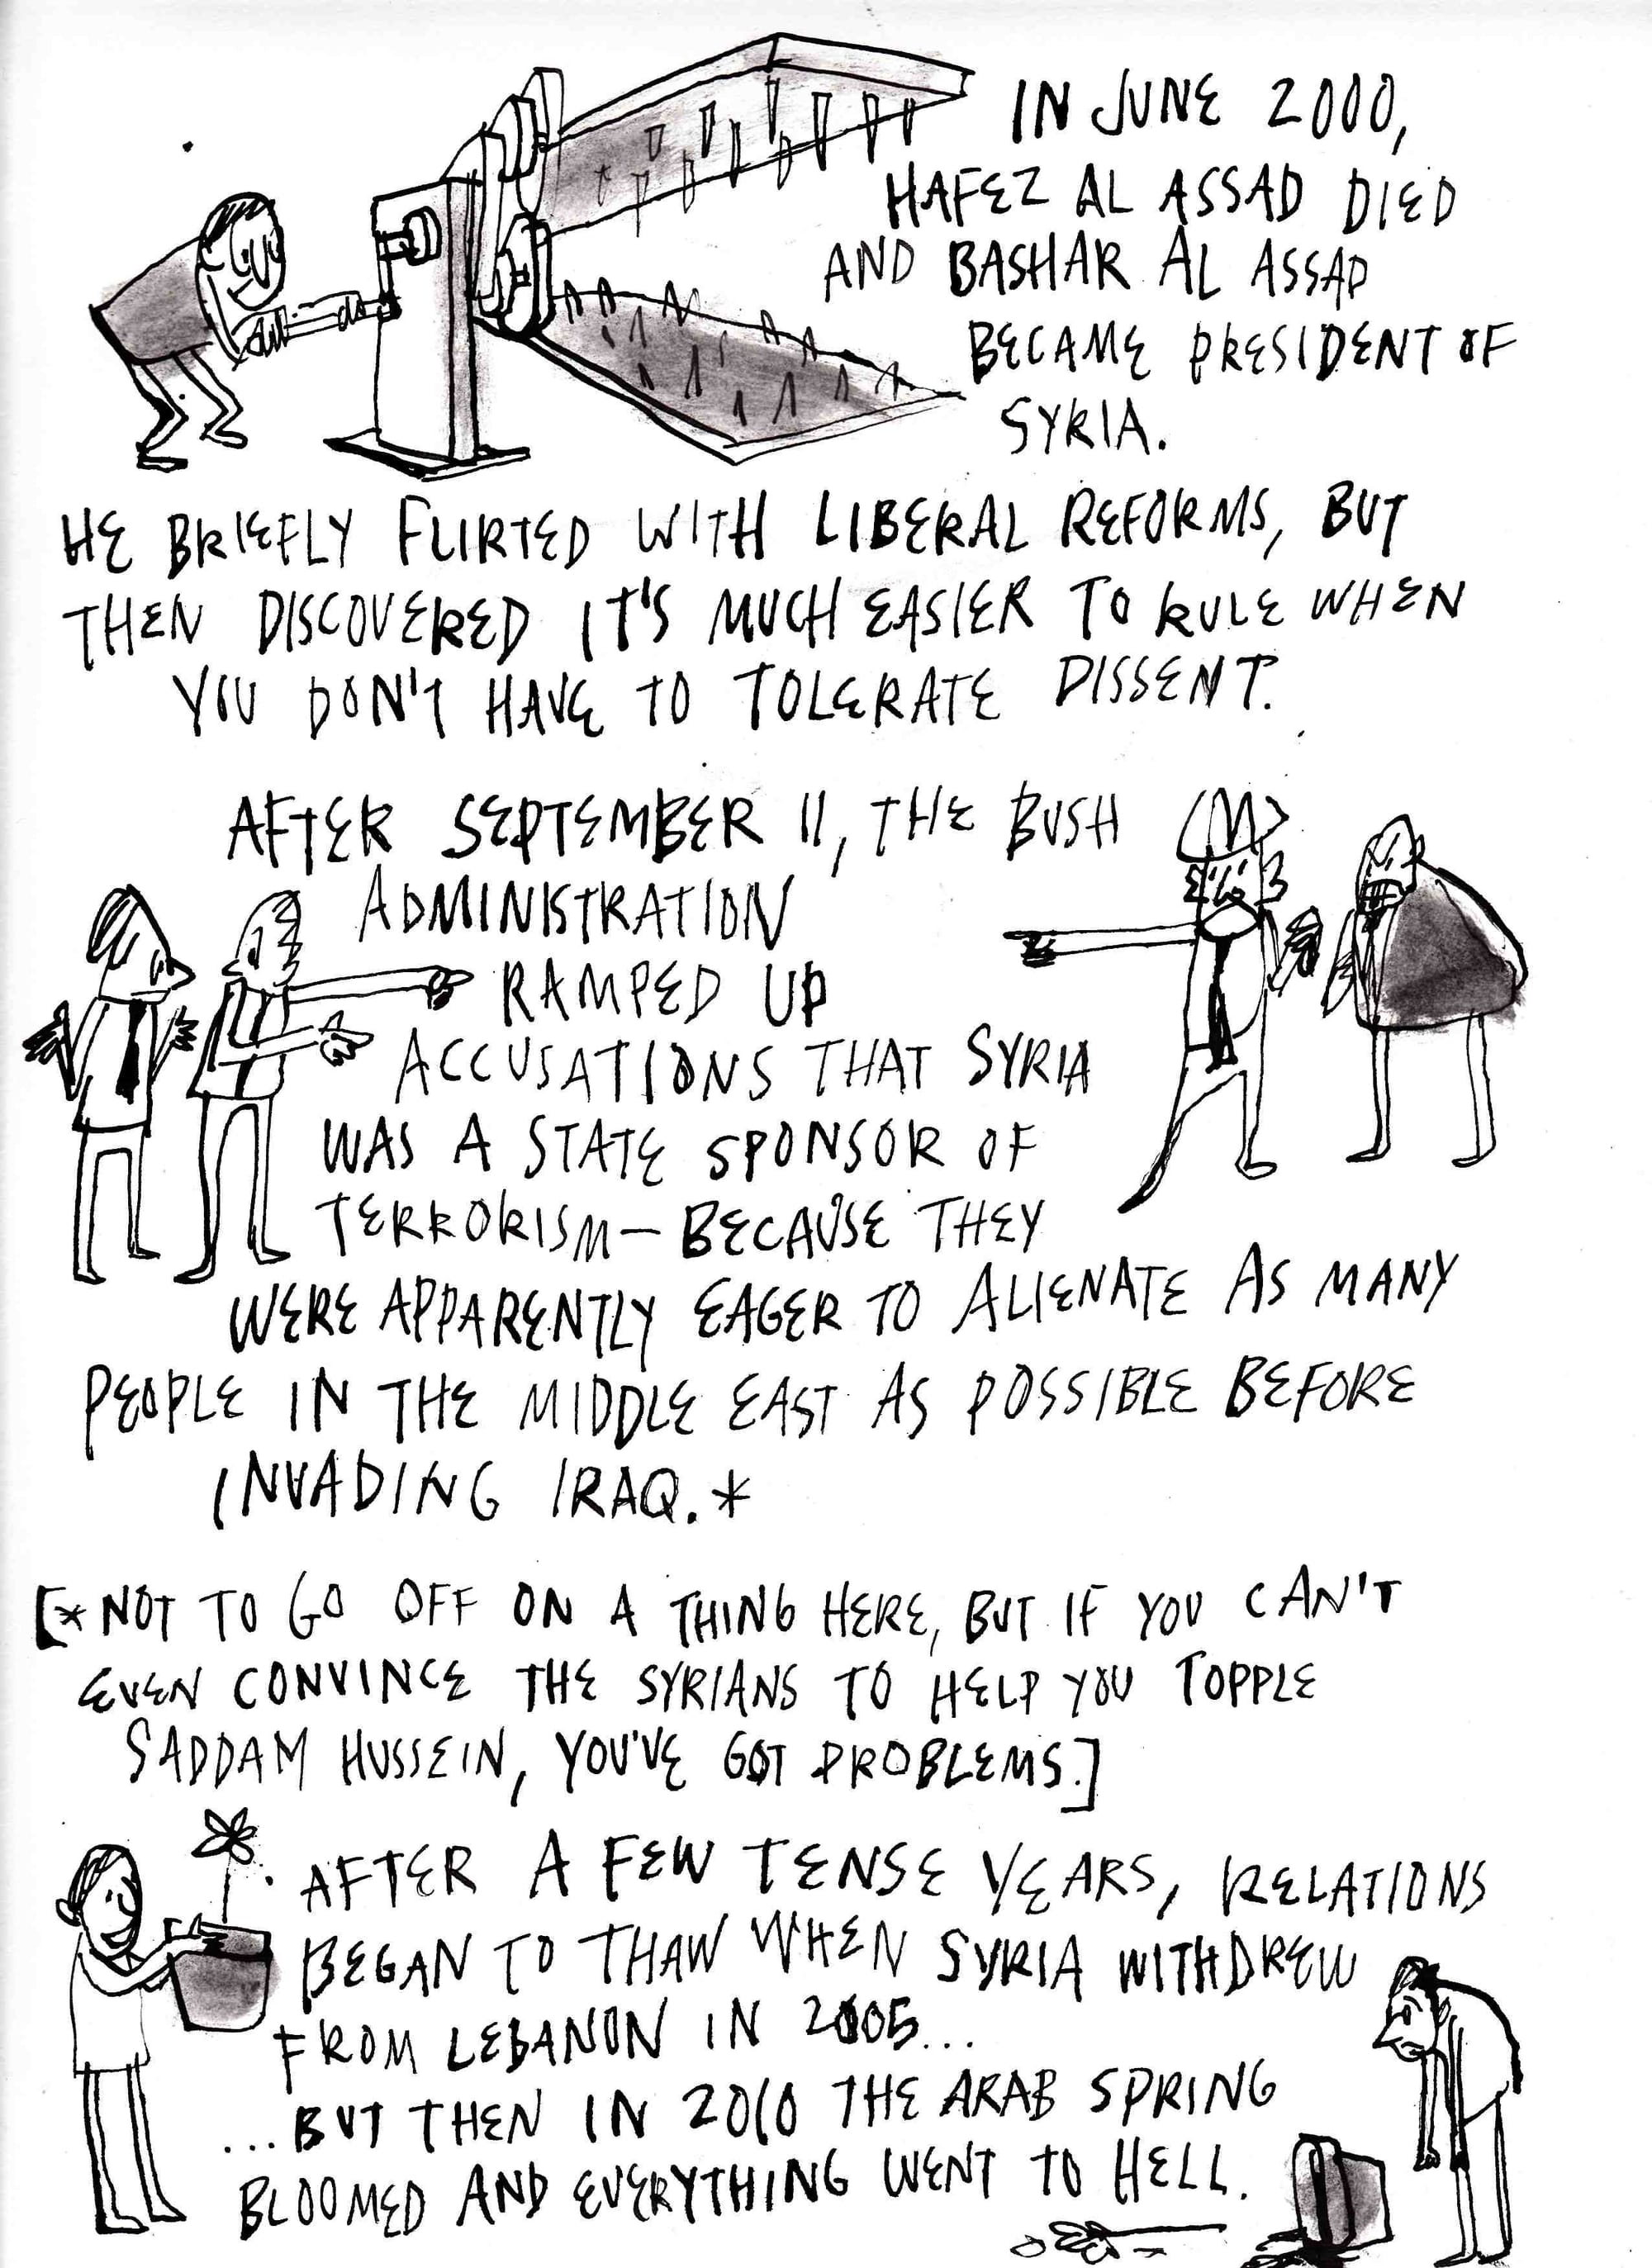 IN JUNE 2000,
HAFEZ AL ASSAD DIED
AND BASHAR AL ASSAD
BECAME PRESIDENT OF
SYRIA.
HE BRIEFLY FLIRTED WITH LIBERAL REFORMS, BUT
THEN DISCOVERED IT'S MUCH EASIER TO RULE WHEN
YOU DON'T HAVE TO TOLERATE DISSENT.
AFTER SEPTEMBER 11, THE BUSH
ADMINISTRATION
RAMPED UP
ACCUSATIONS THAT SYRIA
WAS A STATE SPONSOR OF
TERRORISM—BECAUSE THEY
WERE APPARENTLY EAGER TO ALIENATE AS MANY
PEOPLE IN THE MIDDLE EAST AS POSSIBLE BEFORE
INVADING IRAQ.*
[*NOT TO GO OFF ON A THING HERE, BUT IF YOU CAN'T
EVEN CONVINCE THE SYRIANS TO HELP YOU TOPPLE
SADDAM HUSSEIN, YOU'VE GOT PROBLEMS.]
AFTER A FEW TENSE YEARS, RELATIONS
BEGAN TO THAW WHEN SYRIA WITHDREW
FROM LEBANON IN 2005...
...BUT THEN IN 2010 THE ARAB SPRING
BLOOMED AND EVERYTHING WENT TO HELL.